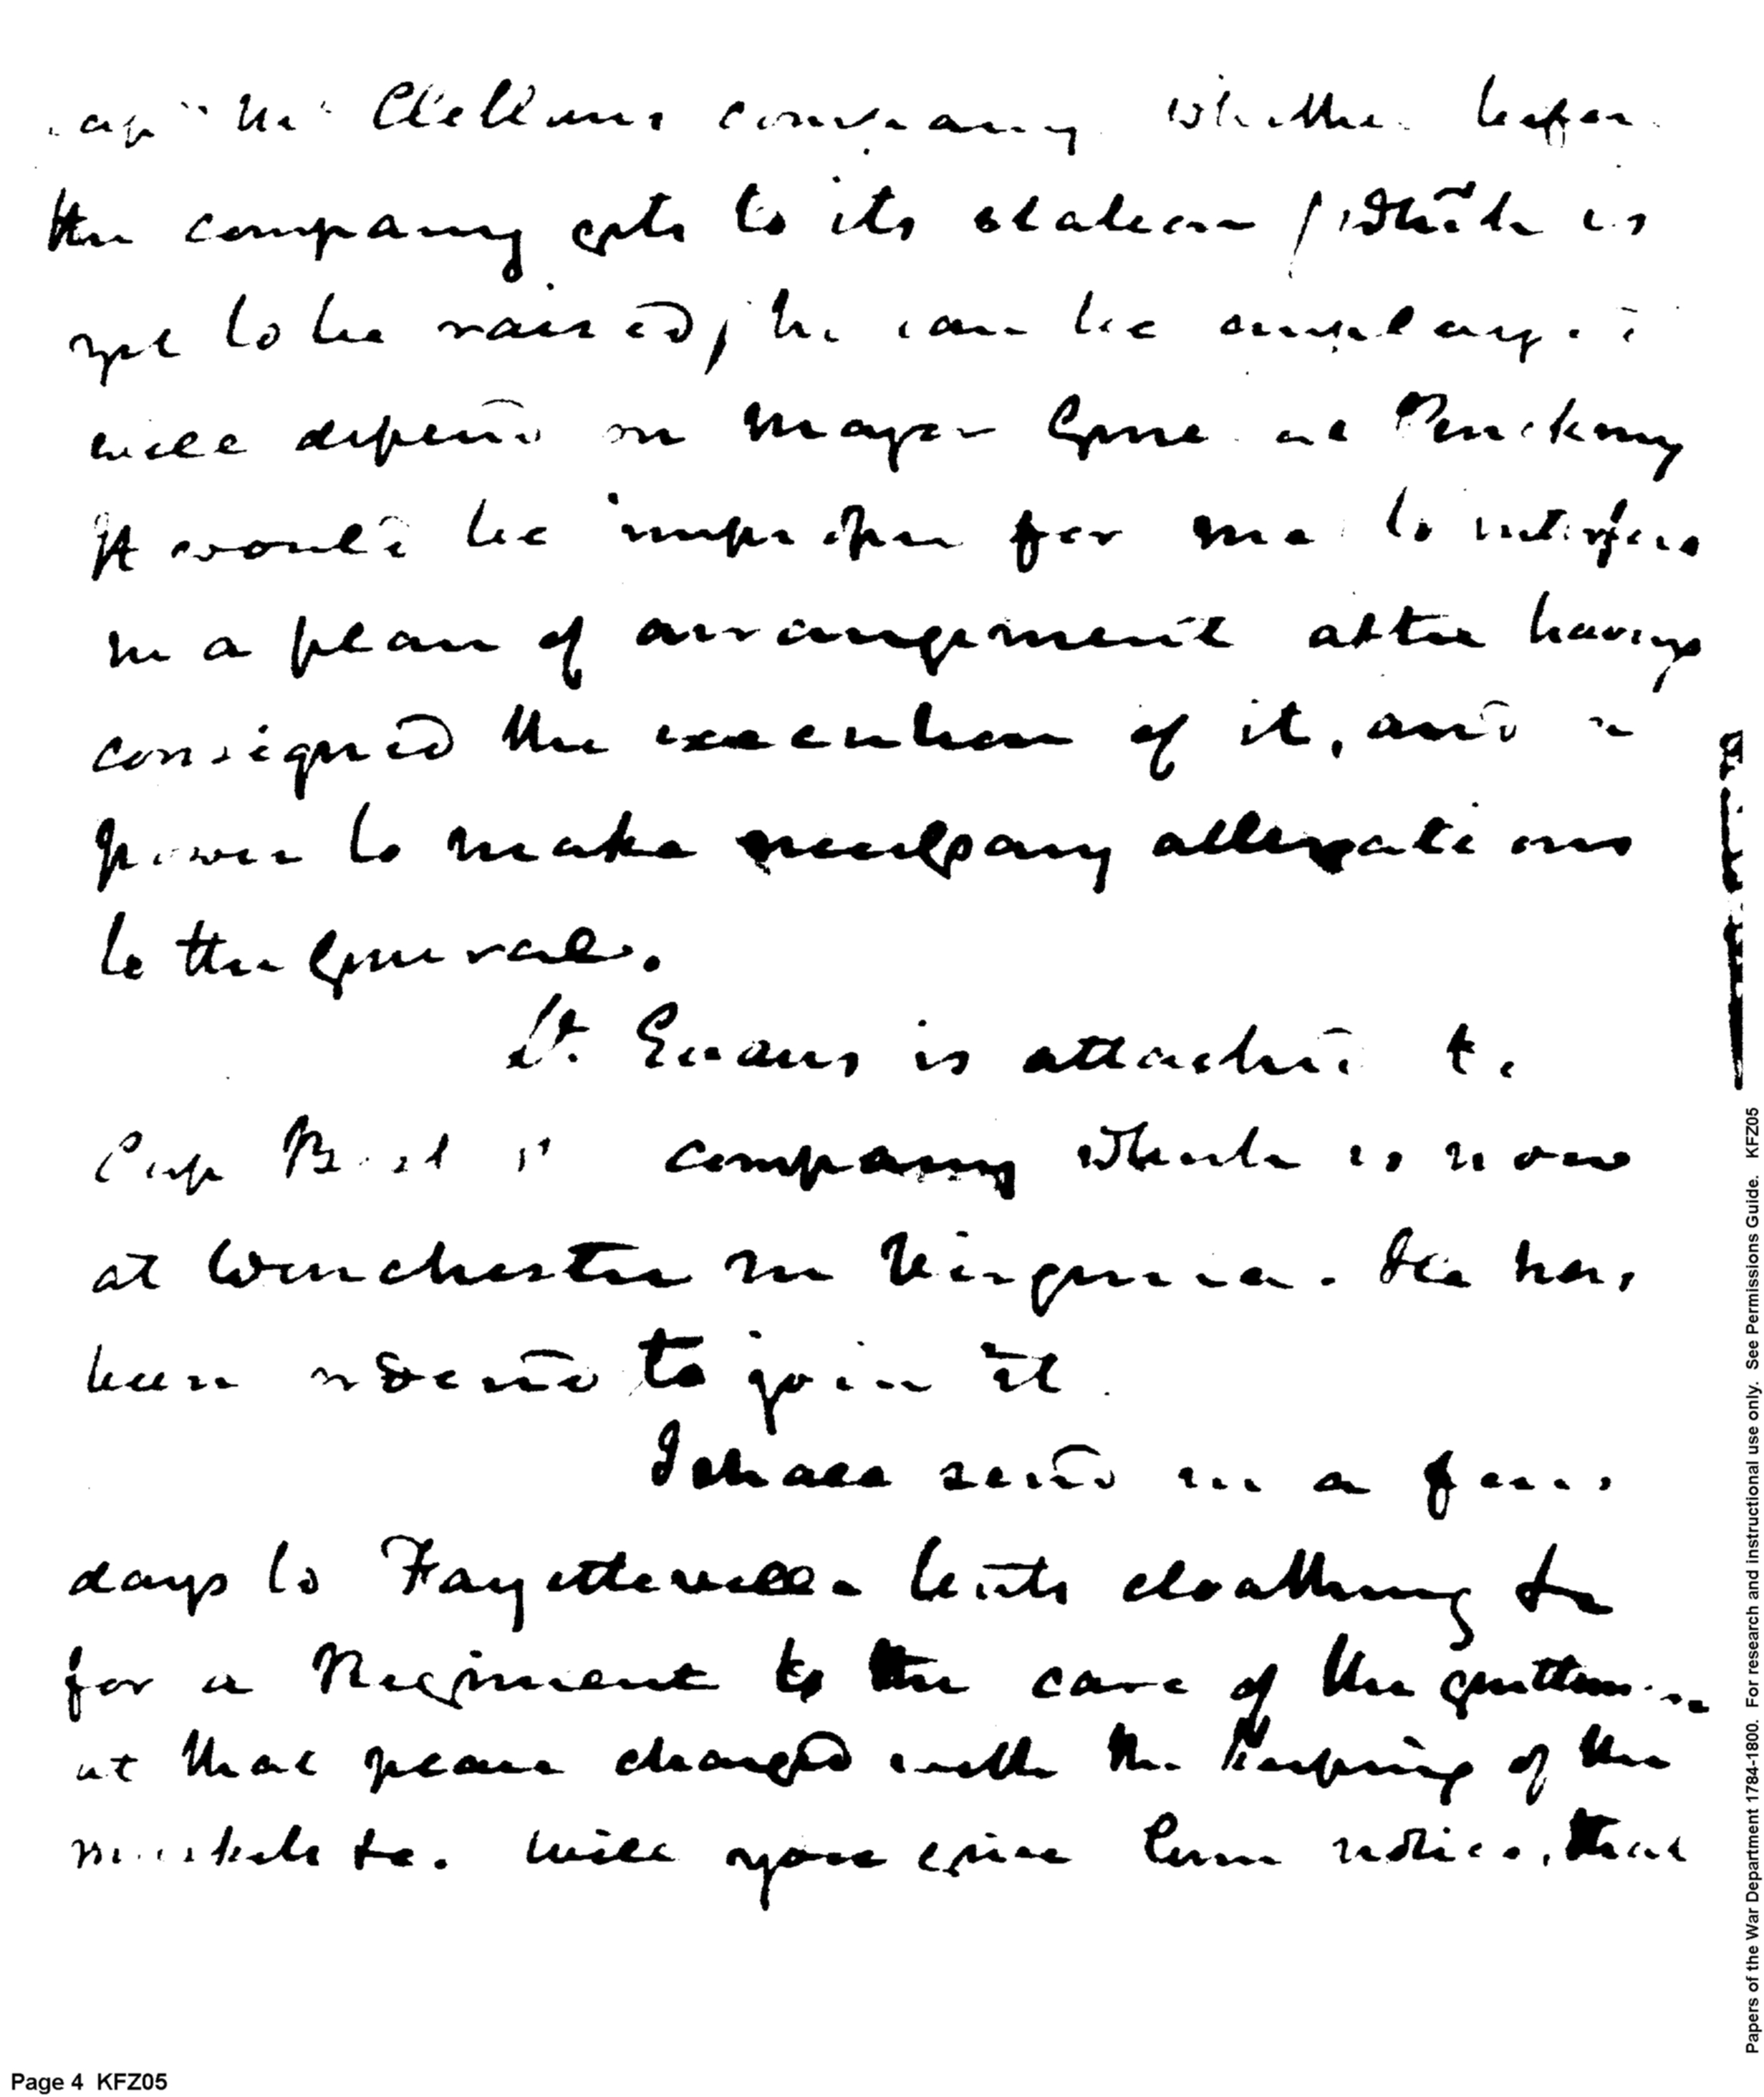 Cap.n Mc Clellans company whether before
the company gets to its station (which is
yet to be raised) he can be employed
will depend on Major General Pinckney
It would be improper for me to interfere
in a plan of arrangement after having
consigned the execution of it, and a
power to make necessary alterations
to the Generals.
Lt. Evans is attached to
Cap company which is now
at Winchester in Virginia. He has
been ordered to join it.
I shall send in a few
days to Fayetteville tents cloathing &c
for a Regiment to the care of the gentleman
at that place charged with the keeping of the
muskets &c. Will you give him notice, that
Papers of the War Department 1784-1800. For research and instructional use only. See Permissions Guide. KFZ05
Page 4 KFZ05